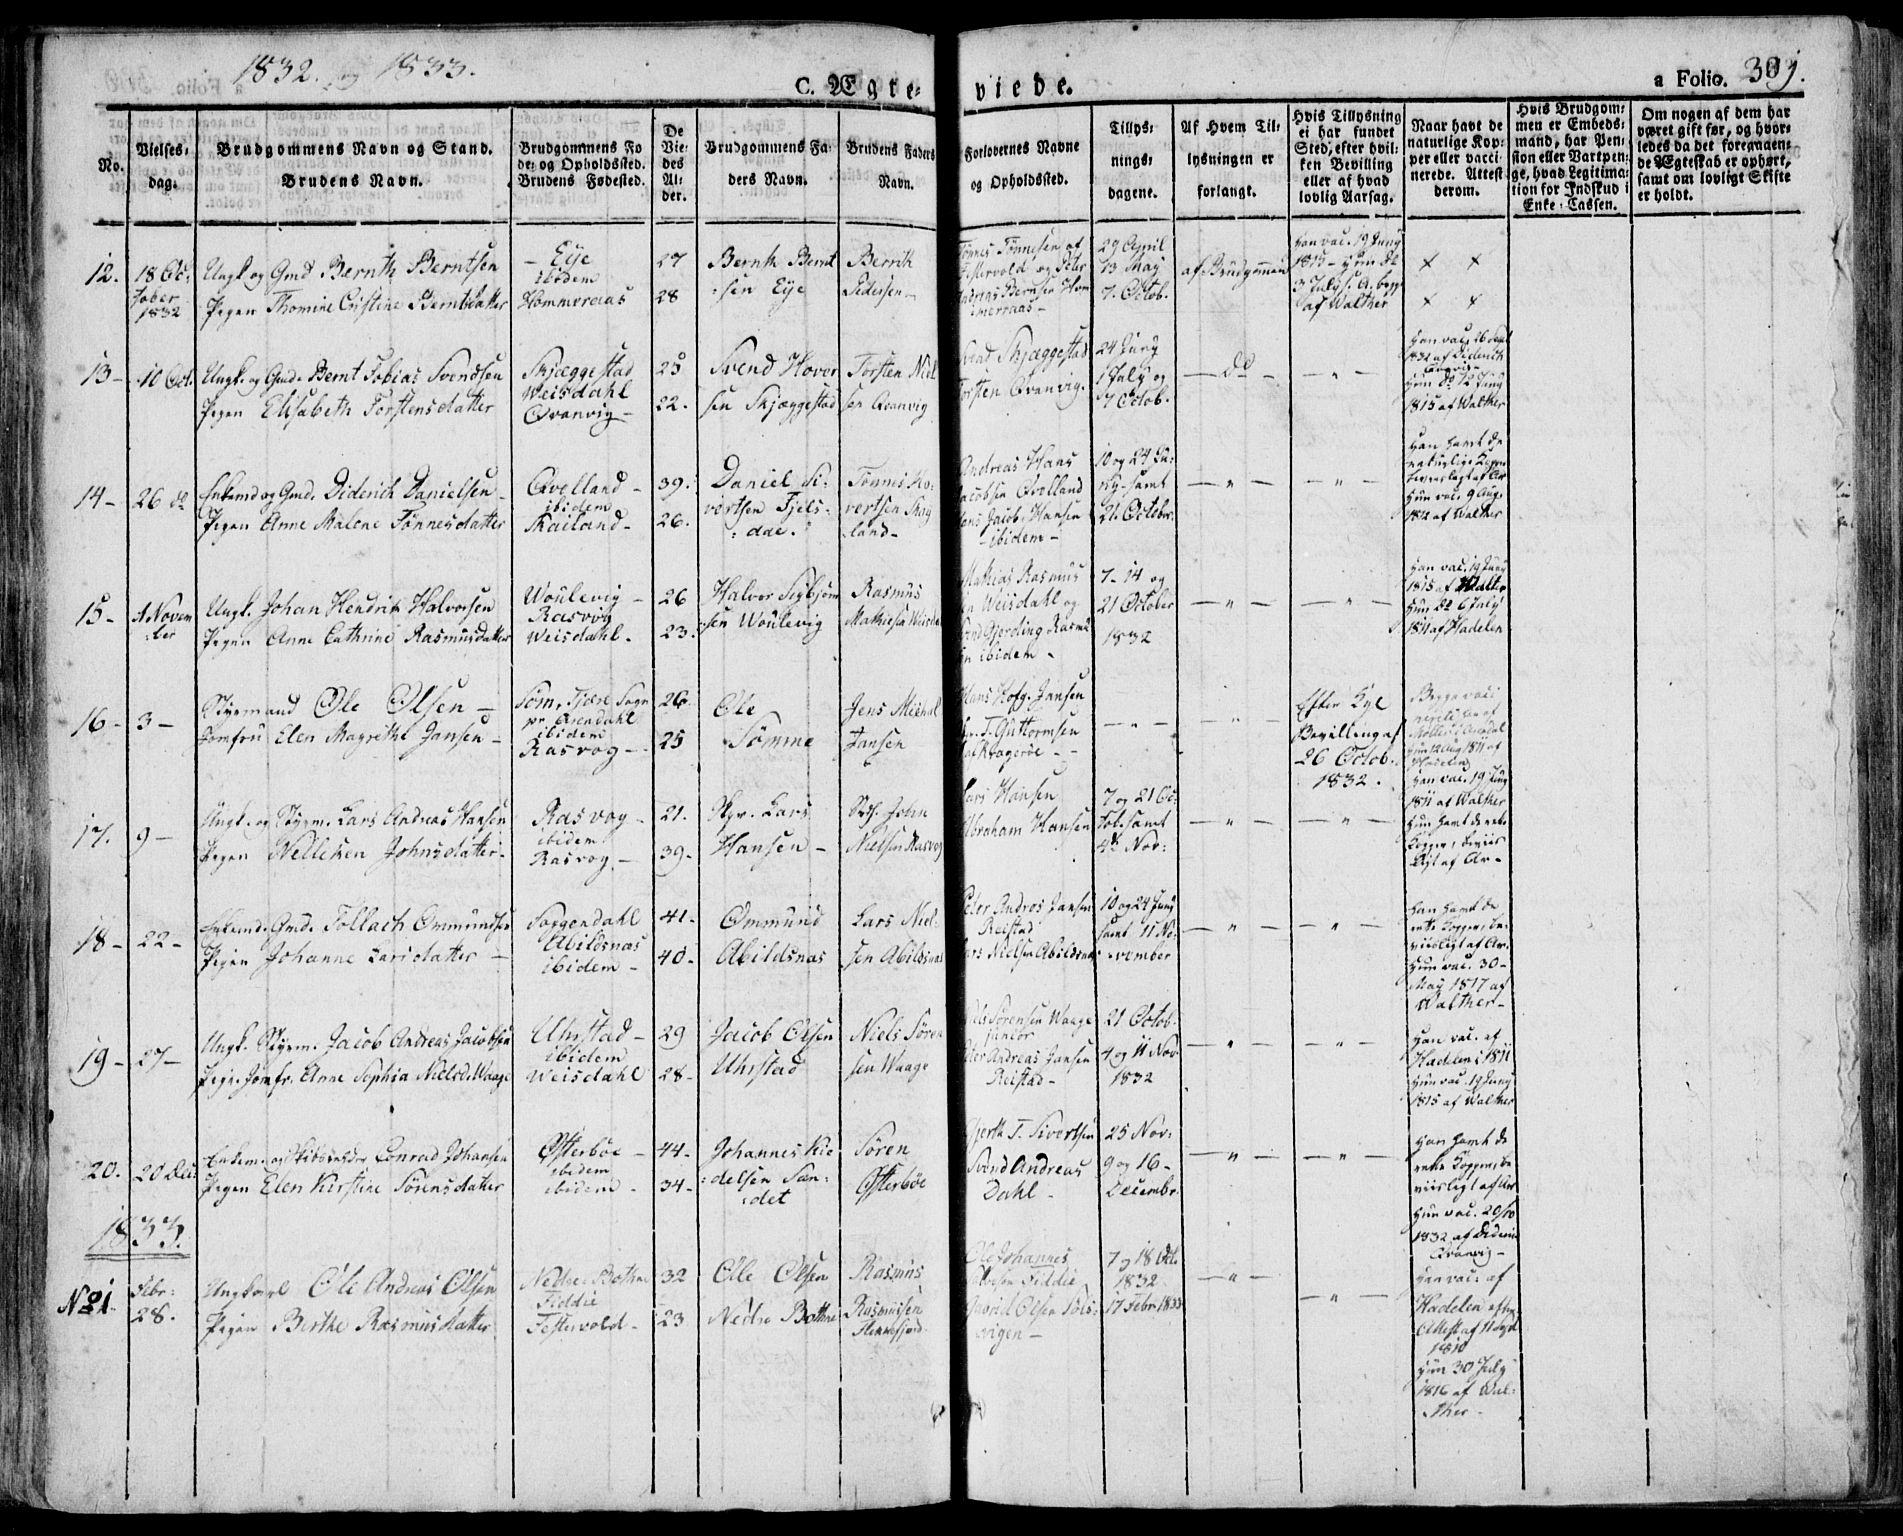 1832. og 1833.
C. Ægte-
viede.
a Folio. 301.
No.
Vielses-
dag.
Brudgommens Navn og Stand.
Brudens Navn.
Brudgommens Fø
de- og Opholdssted.
Brudens Fødested.
De
Vie-
des
Al-
der.
Brudgommens Fa-
ders Navn.
Brudens Faders
Navn.
Forlovernes Navne
og Opholdssted.
Tillys-
nings-
dagene.
Af Hvem Til-
lysningen er
forlangt.
Hvis Tillysning
ei har fundet
Sted, efter hvil-
ken Bevilling
eller af hvad
lovlig Aarsag.
Naar havt de
naturlige Kop-
per eller vacci-
nerede. Attest
derom.
Hvis Brudgom-
men er Embeds-
mand, har Pen-
sion eller Vartpen-
ge, hvad Legitima-
tion for Indskud i
Enke-Cassen.
Om nogen af dem har
været gift før, og hvor-
ledes da det foregaaen-
de Ægteskab er ophørt,
samt om lovligt Skifte
er holdt.
12. 18 Oc-
tober
1832
Ungk. og Gmd Bernth Berntsen
Pigen Thomine Cristine Berntsdatter
Eije
ibidem
Hommeraas
27
28
Bernth Bernt
sen Eije
Berrik
Pedersen
Tönnes Tönnesen af
Festervold og Peter
Andreas Bernsen Hom
merraas
29 April
13 May
7. Octob.
af Brudgommen
Han vac. 19 Juny
1815 - Hun do
3 July s. A. begge
af Walther
x x
x x
13 - 10 Oct.
Ungk. og Gmd. Bernt Tobias Svendsen
Pigen Elisabeth Torstensdatter
Skjæggestad
Weisdahl
Qvanvig
25
22.
Svend Hover
sen Skjæggestad
Torsten Niel
sen Qvanvig
Svend Skjæggestad
Torsten Qvanvig.
24 Juny
1 July og
7 Octob.
- do -
- " -
Han vac. 26 Sept
1832 af Diderich
Qvanvig
Hun do 12 Juny
1815 af Walther
14 - 26 do
Enkemd og Gmd. Diderich Danielsen
Pigen Anne Malene Tönnesdatter
Qvelland
ibidem
Skailand
39.
26.
Daniel Si-
vertsen Fjels-
dae.
Tönnes Ho-
vertsen Skai
land
Andreas Hans
Jacobsen Qvelland
Hans Jacob Hansen
ibidem
10 og 24 Ju-
ny samt
21. October
- " -
- " -
Han havt de
naturlige Kopper
beviisligt af Ar
Hun vac. 9 Aug.
1812 af Walther
15 - 1 Novem
ber
Ungk. Johan Hendrik Halvorsen
Pigen Anne Cathrine Rasmusdatter
Woulevig
Rasvog
Weisdahl.
26
23.
Halvor Sigbjörn
sen Woulevig
Rasmus
Mathiesen Weisda
Mathias Rasmus
sen Weisdahl og
Gierding Rasmu
sen ibidem
7 - 14 og
21 October
1832
- " -
- " -
Han vac. 19 Juny
1815 af Walter
Hun do 6 July
1811 af Hadelen
16 - 3 -
Styrmand Ole Olsen
Jomfru Elen Magrethe Jansen
Söm, Tjære Sogn
pr. Arendahl
ibidem
Rasvog
26.
25
Ole
Tömme
Jens Michal
Jansen
Hans Hofg. Jansen
T. Guttormsen
- " -
- " -
Efter Kgl
Bevilling af
26 Octob.
1832.
Begge vacci
nerede han af
Möller i Arendal
Hun 12 Aug 1811 af
Hadelen
17. 9 -
Ungk. og Styrm. Lars Andreas Hansen
Pigen Nilleken Johnsdatter
Rasvog
ibidem
Rasvog
21.
39.
Skpr. Lars
Hansen
John
Nielsen Rasvog
Lars Hansen
Abraham Hansen
7 og 21 Oc-
tob. samt
4de Nov.
- " -
- " -
Han vac. 19 Juny
1811 af Walther
Hun havt de rette
Kopper, beviis
ligt af Ar
18 - 22 -
Enkemd. Gmd. Tollach Ommundsen
Pigen Johanne Larsdatter
Soggendahl
Abildsnæs
ibidem
41.
40.
Ommund
Abildsnæs
Lars Niel-
sen Abildsnæs
Peter Andreas Jansen
Reistad
Lars Nielsen Abildsnæs
10 og 24 Juny
samt 11 No-
vember
- " -
- " -
Han havt de
rette Kopper, be-
viisligt af Ar.
Hun vac. 30
May 1817 af
Walther
19 - 27 -
Ungk. Styrm. Jacob Andreas Jacobsen
Pigen Jomfr. Anne Sophia Nielsd. Waage
Uhrstad
ibidem
Weisdahl
29
28
Jacob Olsen
Uhrstad
Niels Sören
sen Waage
Niels Sörensen Waage
junior
Peter Andreas Jansen
Reistad
21 Octob.
4 og 11 Nov.
1832
- " -
- " -
Han vac. af
Hadelen i 1811
Hun vac. 19 Juny
1815 af Walther
20. 20 Dec.
Enkem. og Skibsreder Conrad Johansen
Pigen Elen Kirstine Sörensdatter
Österböe
ibidem
ibidem
44
34
Johannes Kie
delsen San-
det
Sören
Österböe
Gjerth T. Sivertsen
Svend Andreas
Dahl
25 Nov.
9 og 16
Decembr.
- " -
- " -
Han havt de
rette Kopper, be
viisligt af Ar
Hun vac. 20/10
1832 af Diderich
Qvanvig
1833.
No 1. Febr.
28.
Ungkarl Ole Andreas Olsen
Pigen Berthe Rasmusdatter
Nedre Bothne
Fiddie
Festervold
32
23
Ole Olsen
Nedre Bothne
Rasmus
Rasmusen
Ole Johannes
Olsen Fiddie
Gabriel Olsen Sols-
vigen
7 og 18 Oct.
1832
17 Febr. 1833
- " -
- " -
Han vac. af
Hadelen efter
Attest af 11 Sept
1810
Hun 30 July
1816 af Wal-
ther